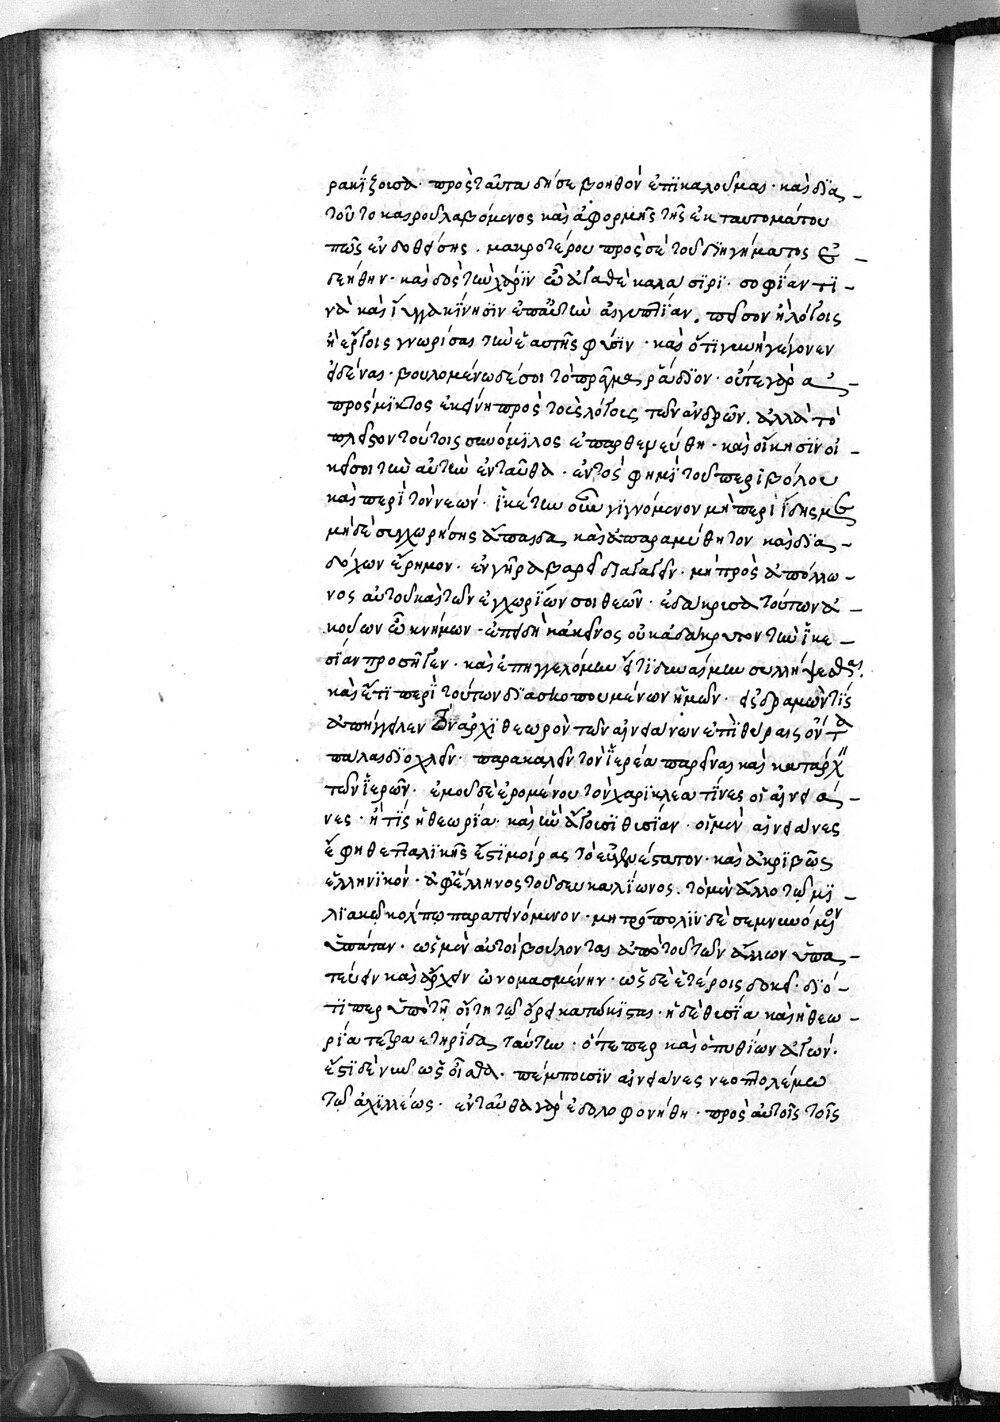 ρακίζουσα· πρὸς ταῦτα δή σε βοηθὸν ἐπικαλοῦμαι· καὶ διὰ
τοῦτο καιροῦ λαβόμενος καὶ ἀφορμῆς τῆς ἐκ ταυτομάτου
πῶς ἐνδοθείσης· μακροτέρου πρὸς σὲ τοῦ διηγήματος ἐ
δεήθην· καὶ δὸς τὴν χάριν ὦ ἀγαθὲ καλασῖρι· σοφίαν τι
νὰ καὶ ἴυγγα κίνησιν ἐπ' αὐτὴν αἰγυπτίαν· πεῖσον ἢ λόγοις
ἢ ἔργοις γνωρίσαι τὴν ἑαυτῆς φύσιν· καὶ ὅτι γυνὴ γέγονεν
εἰδέναι· βουλομένω δέ σοι τὸ πρᾶγμα ῥάδιον· οὔτε γὰρ ἀ
πρόσμικτος ἐκείνη πρὸς τοὺς λόγους τῶν ἀνδρῶν· ἀλλὰ τὸ
πλεῖστον τούτοις συνόμιλος ἐπαρθενεύθη· καὶ οἴκησιν οἰ
κεῖ σοι τὴν αὐτὴν ἐνταῦθα· ἐντός φημι τοῦ περιβόλου
καὶ περὶ τὸν νεών· ἱκέτην οὖν γιγνόμενον μὴ περιίδης με
μηδὲ συγχωρήσης ἄπαιδα καὶ ἀπαραμύθητον καὶ δια
δόχων ἔρημον· ἐν γήρα βαρεῖ διαγαγεῖν· μὴ πρὸς ἀπόλλω
νος αὐτοῦ καὶ τῶν ἐγχωρίων σοι θεῶν· ἐδάκρυσα τούτων ἀ
κούων ὦ κνήμων· ἐπειδὴ κἀκεῖνος οὐκ ἀδακρυτον τὴν ἱκε
σίαν προσῆγεν· καὶ ἐπηγγελόμην εἴ τι δυναίμην συλλήψεσθαι.
καὶ ἔτι περὶ τούτων διασκοπουμένων ἡμῶν· εἰσδραμών τις
ἀπήγγελλεν τὸν ἀρχιθεωρὸν τῶν αἰνειάνων ἐπὶ θύραις ὄντα
πάλαι διοχλεῖν· παρακαλεῖν τὸν ἱερέα παρεῖναι καὶ κατάρχειν
τῶν ἱερῶν· ἐμοῦ δὲ ἐρομένου τὸν χαρικλέα τίνες οἱ αἰνειᾶ
νες· ἢ τίς ἡ θεωρία· καὶ ἣν ἄγουσι θυσίαν· οἱ μὲν αἰνειᾶνες
ἔφη θετταλικῆς ἐστι μοίρας τὸ εὐγενέστατον· καὶ ἀκριβῶς
ἑλληνικόν· ἀφ' ἕλληνος τοῦ δευκαλίωνος· τὸ μὲν ἄλλο τῷ μη
λιακῷ κόλπω παρατεινόμενον· μητρόπολιν δὲ σεμνυνόμενον
ὑπάταν· ὡς μὲν αὐτοὶ βούλονται ἀπὸ τοῦ τῶν ἄλλων ὑπα
τεύειν καὶ ἄρχειν ὠνομασμένην· ὡς δὲ ἑτέροις δοκεῖ· διό
τιπερ ὑπὸ τῇ οἴτῃ τῷ ὄρει κατώκισται· ἡ δὲ θυσία καὶ ἡ θεω
ρία τετραετηρίδα ταύτην· ὅτε περ καὶ ὁ πυθίων ἀγών·
ἔστι δὲ νῦν ὡς οἶσθα· πέμπουσιν αἰνειᾶνες νεοπτολέμω
τῷ ἀχιλλέως· ἐνταῦθα γὰρ ἐδολοφονήθη· πρὸς αὐτοῖς τοῖς